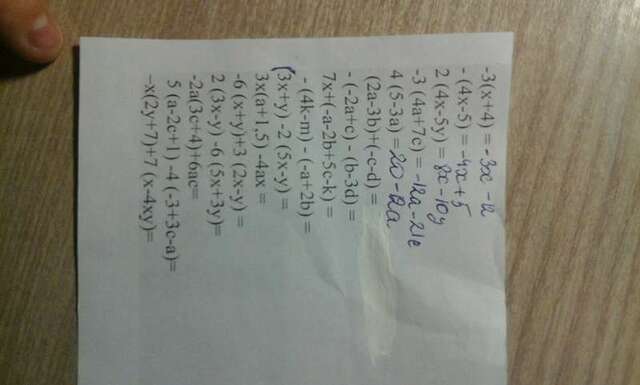 -3(x+4) = -3x -12
- (4x-5) = -4x + 5
2 (4x-5y) = 8x -10y
-3 (4a+7c) = -12a -21c
4 (5-3a) = 20 -12a
(2a-3b)+(-c-d) =
- (-2a+c) - (b-3d) =
7x+(-a-2b+5c-k) =
- (4k-m) - (-a+2b) =
(3x+y) -2 (5x-y) =
3x(a+1,5) -4ax =
-6 (x+y)+3 (2x-y) =
2 (3x-y) -6 (5x+3y)=
-2a(3c+4)+6ac=
5 (a-2c+1) -4 (-3+3c-a)=
-x(2y+7)+7 (x-4xy)=